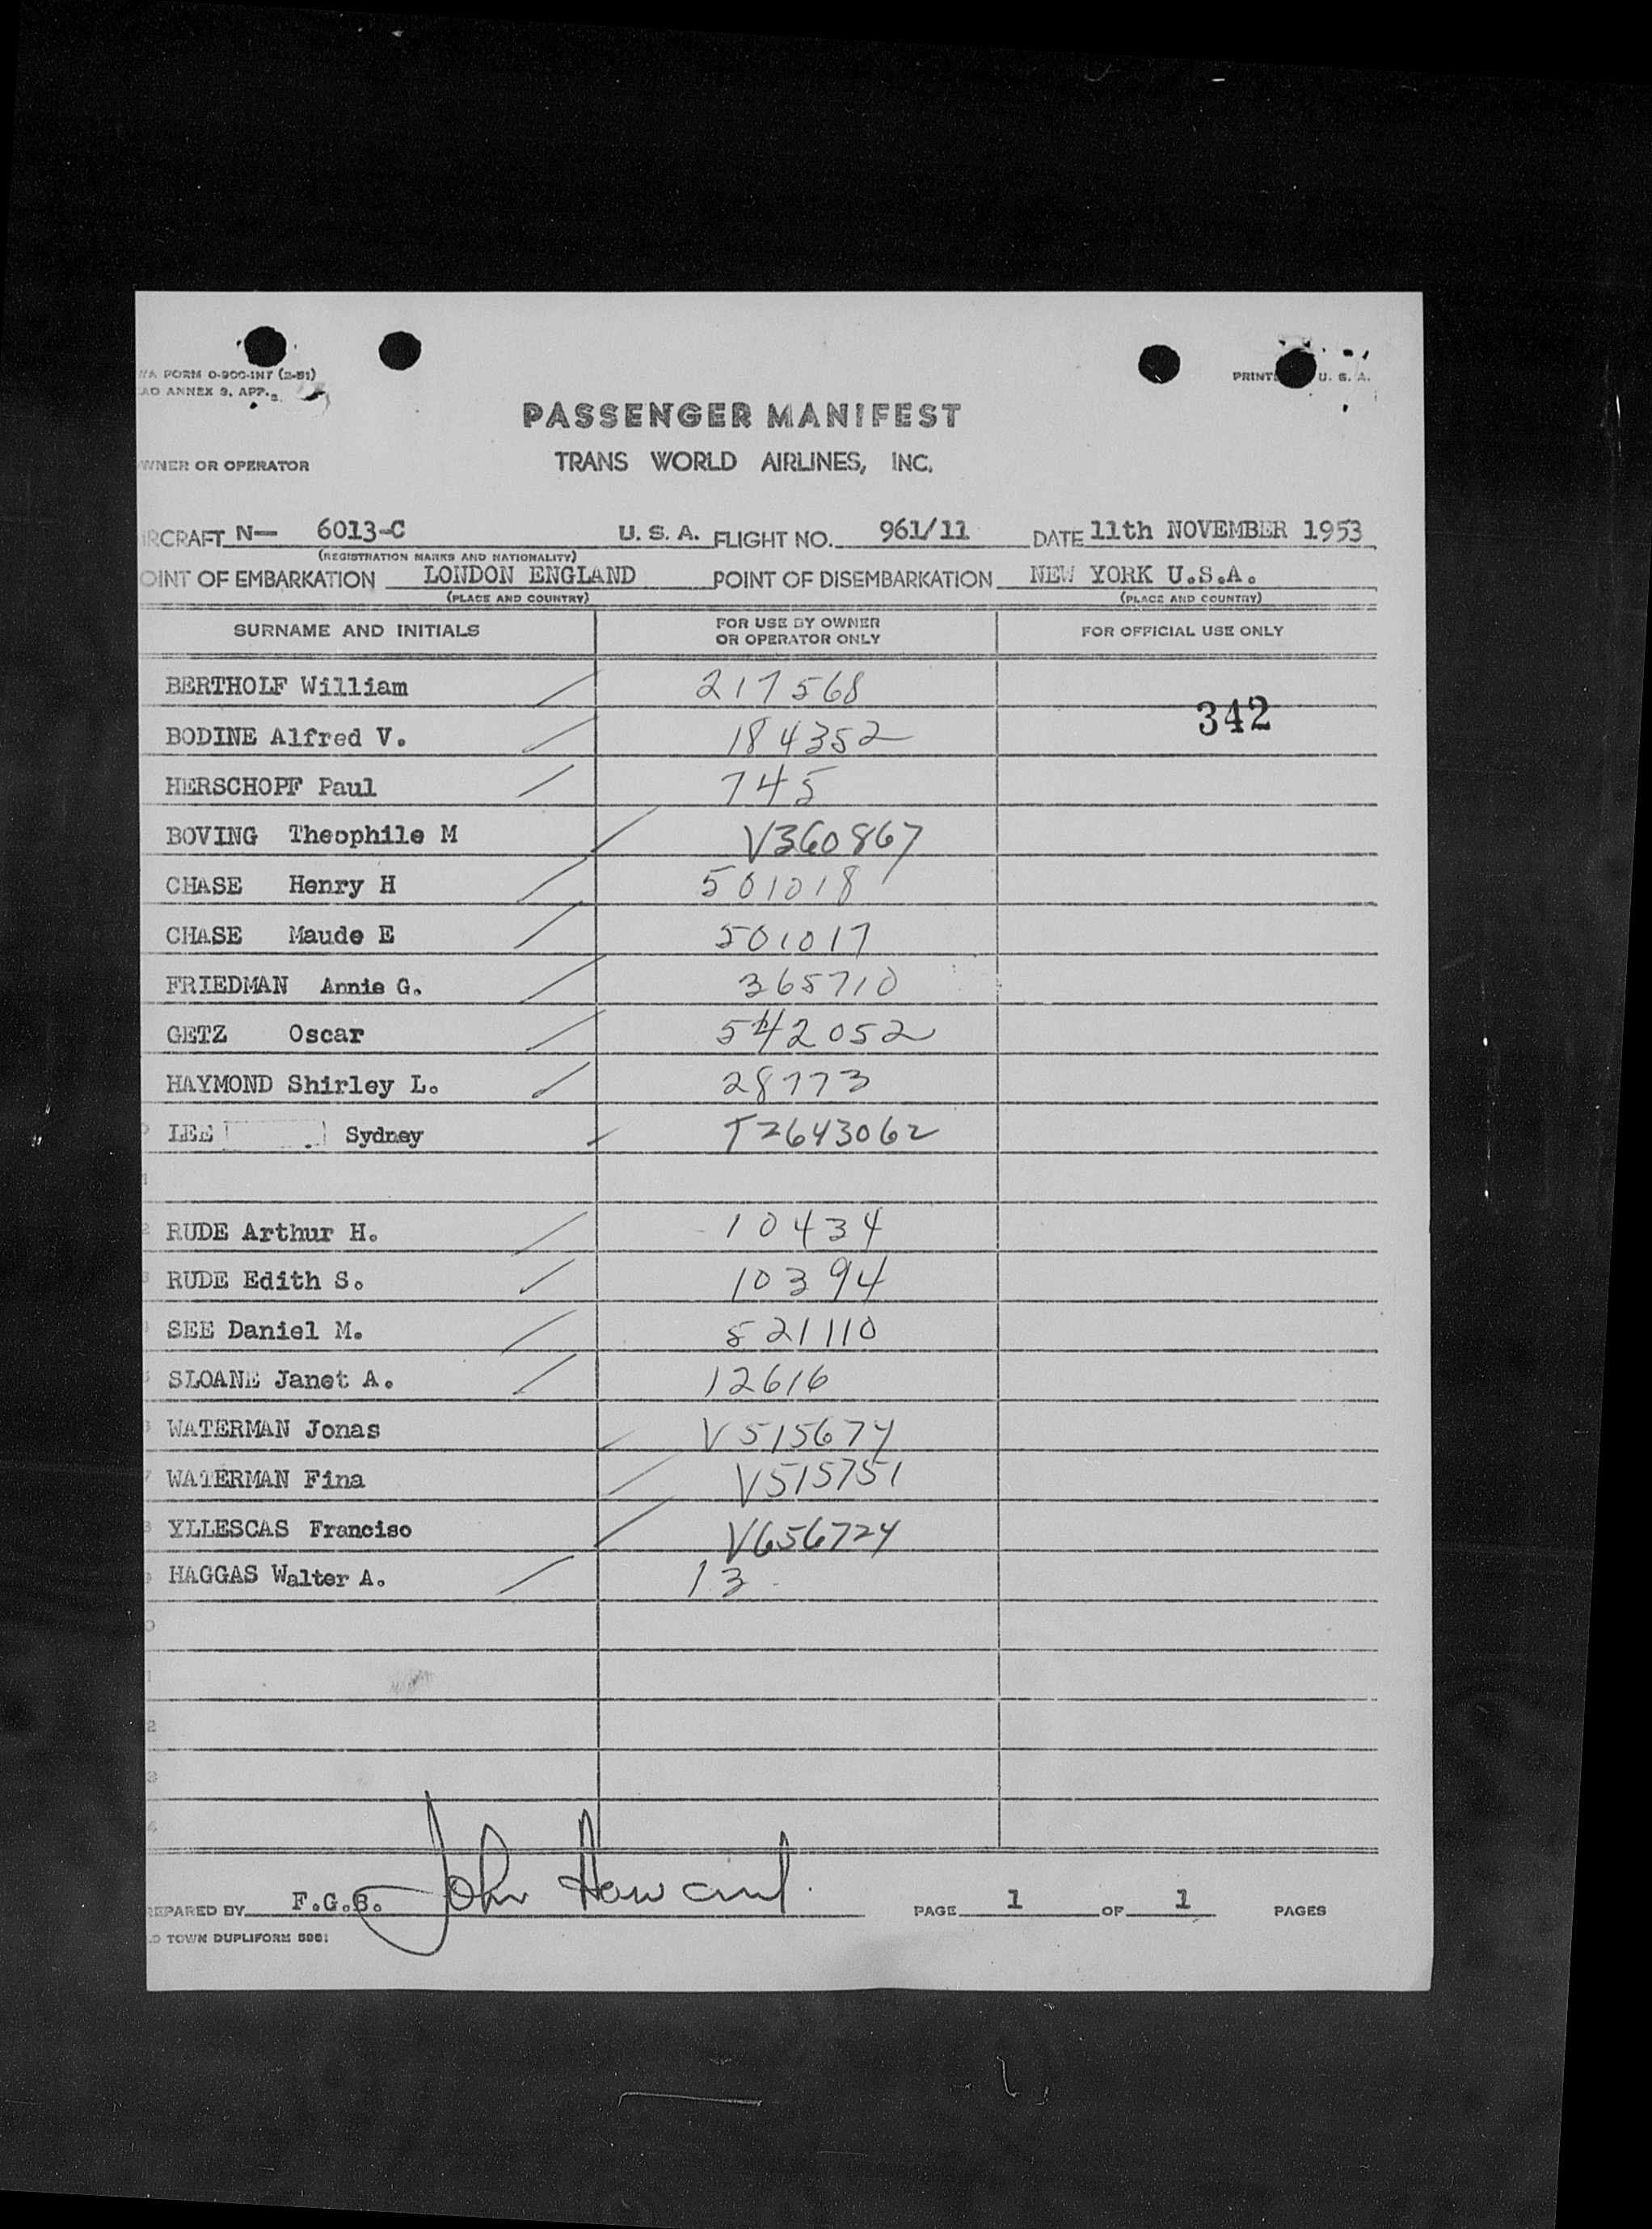 WA FORM O-900-INT (2-51)
AO ANNEX 9, APP.
PRINT U. S. A.
PASSENGER MANIFEST
WNER OR OPERATOR TRANS WORLD AIRLINES, INC.
RCRAFT N— 6013-C U. S. A. FLIGHT NO. 961/11 DATE 11th NOVEMBER 1953
(REGISTRATION MARKS AND NATIONALITY)
OINT OF EMBARKATION LONDON ENGLAND POINT OF DISEMBARKATION NEW YORK U.S.A.
(PLACE AND COUNTRY) (PLACE AND COUNTRY)
SURNAME AND INITIALS FOR USE BY OWNER OR OPERATOR ONLY FOR OFFICIAL USE ONLY
BERTHOLF William 217568
342
BODINE Alfred V. 184352
HERSCHOPF Paul 745
BOVING Theophile M V360867
CHASE Henry H 501018
CHASE Maude E 501017
FRIEDMAN Annie G. 365710
GETZ Oscar 542052
HAYMOND Shirley L. 28773
LEE Sydney T2643062
RUDE Arthur H. 10434
RUDE Edith S. 10394
SEE Daniel M. 521110
SLOANE Janet A. 12616
WATERMAN Jonas V515674
WATERMAN Fina V515751
YLLESCAS Franciso V656724
HAGGAS Walter A. 13
2
3
EPARED BY F.G.B. John Howard. PAGE 1 OF 1 PAGES
D TOWN DUPLIFORM